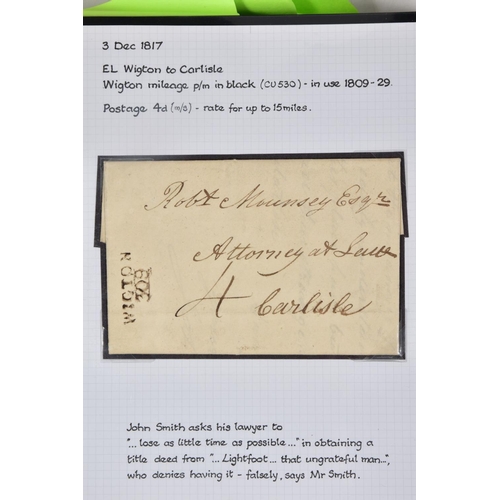 3 Dec 1817
EL Wigton to Carlisle
Wigton mileage p/m in black (CU530) - in use 1809-29.
Postage 4d (m/s) - rate for up to 15miles.
Robt Mounsey Esqr
Attorney at Law
4 Carlisle
WIGTON
309
John Smith asks his lawyer to
"... lose as little time as possible..." in obtaining a
title deed from "... Lightfoot... that ungrateful man...",
who denies having it - falsely, says Mr Smith.